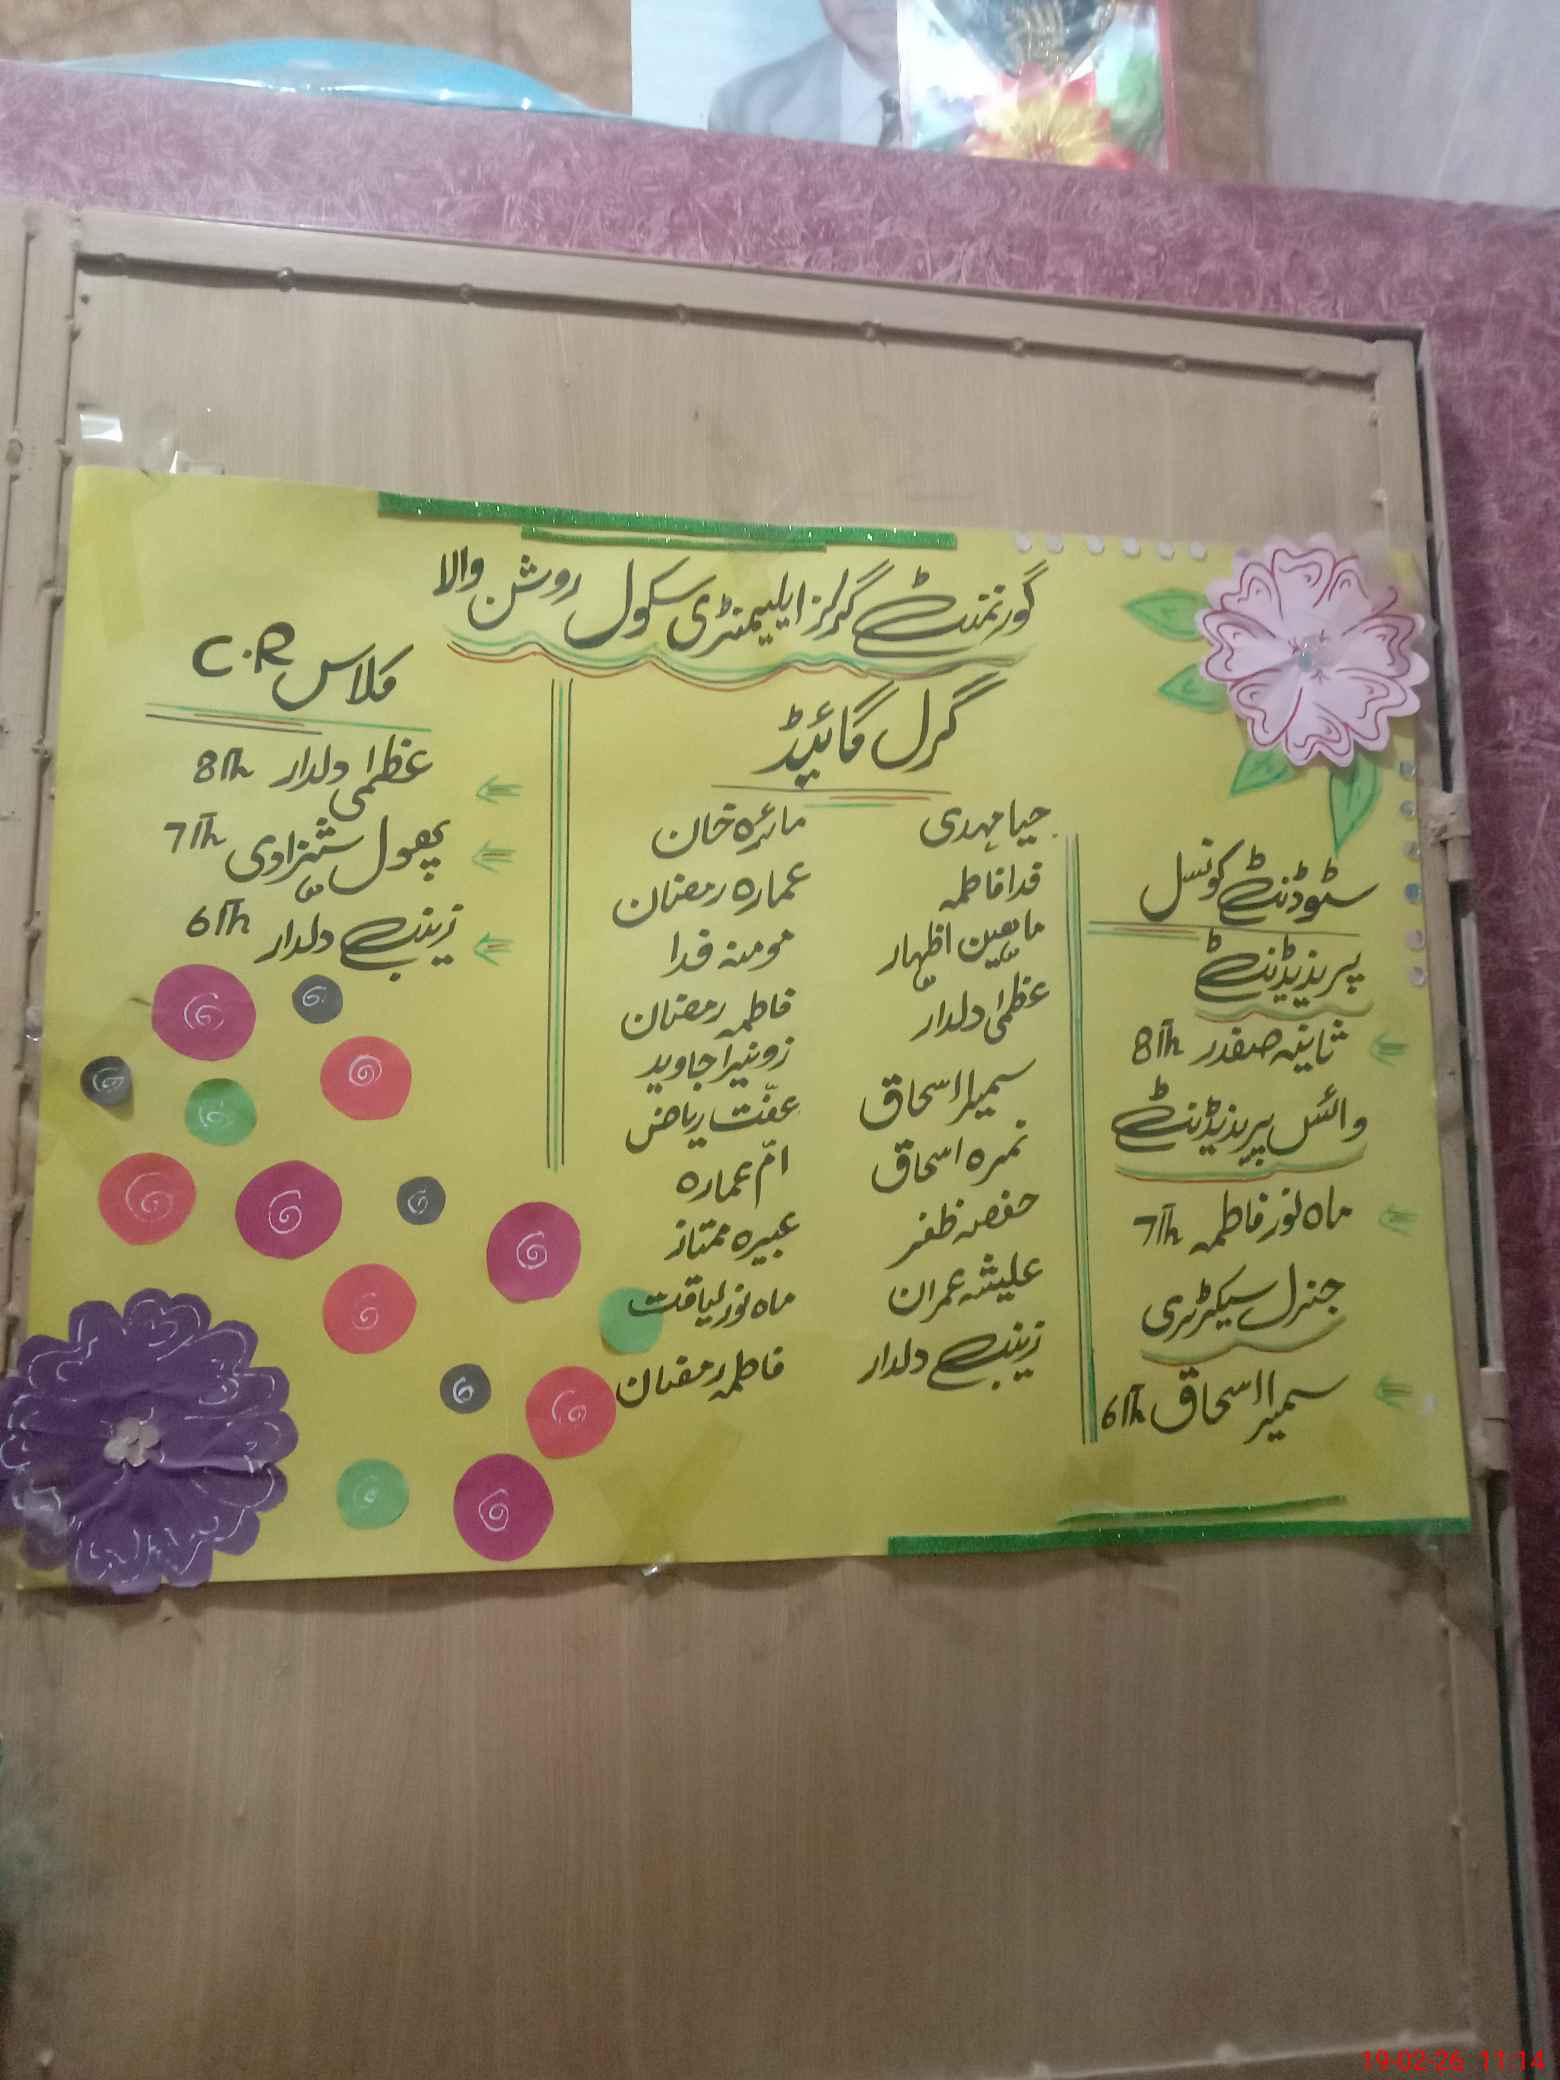 گورنمنٹ گرلز ایلیمنٹری سکول روشن والا
سٹوڈنٹ کونسل
پریذیڈنٹ
ثانیہ صفدر 8th
وائس پریذیڈنٹ
ماہ نور فاطمہ 7th
جنرل سیکرٹری
سمیرا اسحاق 6th
گرل گائیڈ
حیا مہدی
فدا فاطمہ
ماہین اظہار
عظمیٰ دلدار
سمیرا اسحاق
نمرہ اسحاق
حفصہ ظفر
علیشہ عمران
زینب دلدار
مائرہ خان
عمارہ رمضان
مومنہ فدا
فاطمہ رمضان
زونیرا جاوید
عفّت ریاض
امّ عمارہ
عبیرہ ممتاز
ماہ نور لیاقت
فاطمہ رمضان
کلاس C.R
عظمیٰ دلدار 8th
پھول شہزادی 7th
زینب دلدار 6th
19-02-26 11:14